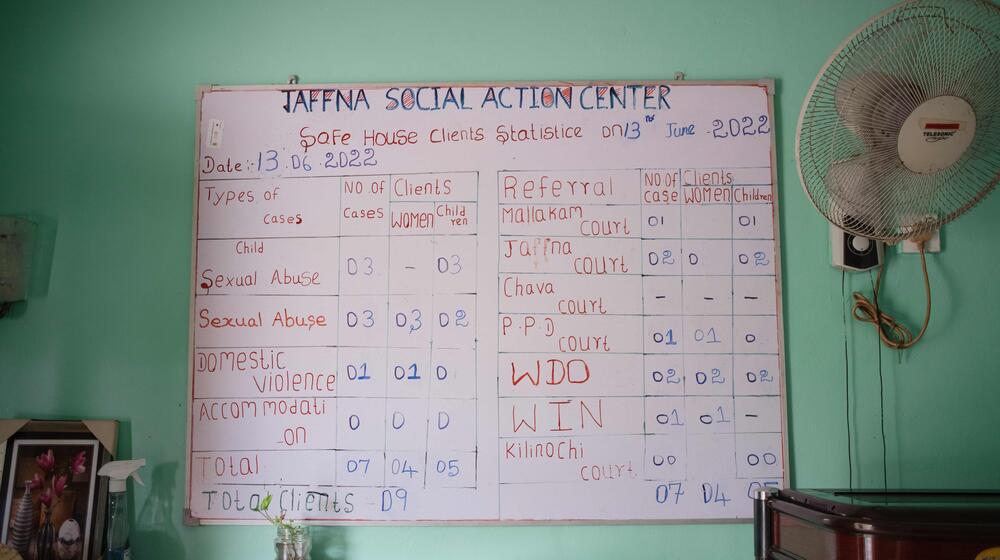 JAFFNA SOCIAL ACTION CENTER
Safe House Clients Statistice on 13th June - 2022
Date:- 13.06.2022
Types of cases | No of Cases | Clients Women | Children
Child Sexual Abuse | 03 | - | 03
Sexual Abuse | 03 | 03 | 02
Domestic violence | 01 | 01 | 0
Accommodati-on | 0 | 0 | 0
Total | 07 | 04 | 05
Total Clients - 09
Referral | No of case | Clients Women | Children
Mallakam court | 01 | | 01
Jaffna court | 02 | 0 | 02
Chava court | - | - | -
P.P.D court | 01 | 01 | 0
WDO | 02 | 02 | 02
WIN | 01 | 01 | -
Kilinochi court | 00 | | 00
07 04 05
TELESONIC